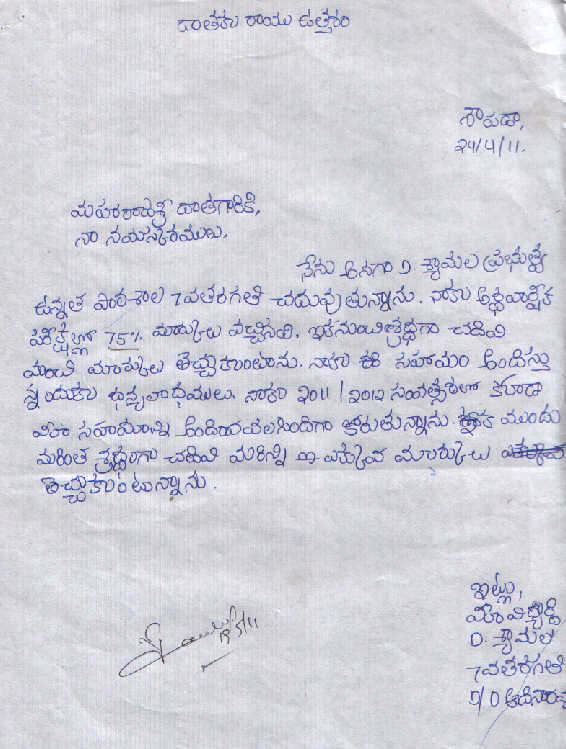 దాతకు రాయు ఉత్తరం
శొపడా,
24/4/11.
మహారాజశ్రీ దాతగారికి,
నా నమస్కారములు.
నేను అనగా D శ్యామల ప్రభుత్వ
ఉన్నత పాఠశాల 7వతరగతి చదువుతున్నాను. నాకు అర్థవార్షిక
పరీక్షల్లో 75% మార్కులు వచ్చినవి. ఇకనుంచిశ్రద్ధగా చదివి
మంచి మార్కులు తెచ్చుకుంటాను. నాకు ఈ సహాయం అందిస్తు
న్నందుకు ధన్యవాదములు. నాకు 2011/2012 సంవత్సరంలో కూడా
మీరు సహాయాన్ని అందించవలసిందిగా కోరుతున్నాను ఇక ముందు
మరింత శ్రద్ధగా చదివి మరిన్ని ఎక్కువ మార్కులు
తెచ్చుకుంటున్నాను.
ఇట్లు,
మీ విద్యార్థి
D శ్యామల
7వతరగతి
D/O ఆదినారా
18/5/11